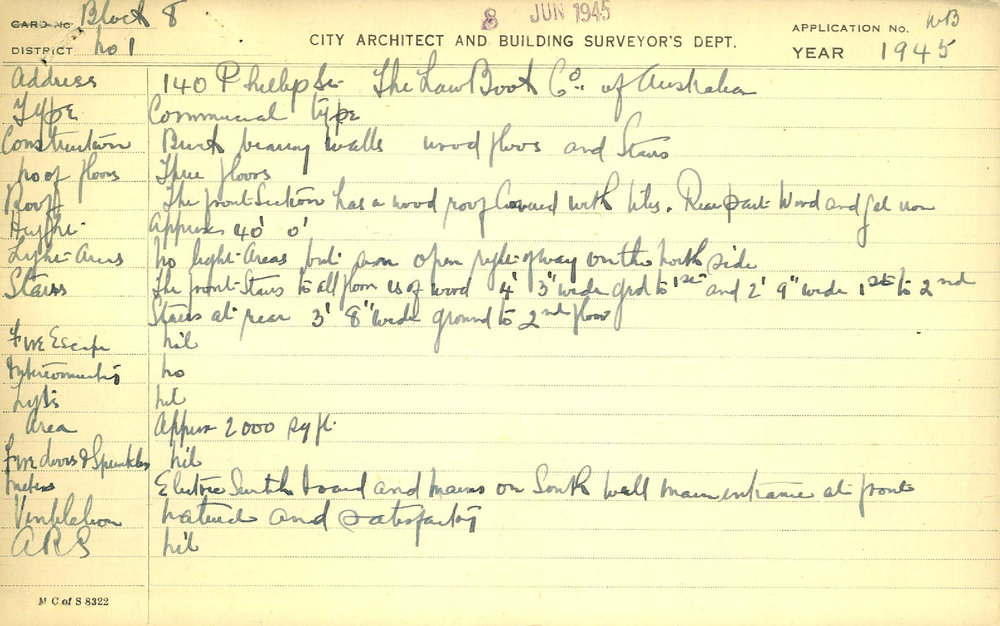 CARD No. Block 8
8 JUN 1945
APPLICATION No. WB
DISTRICT No 1
CITY ARCHITECT AND BUILDING SURVEYOR'S DEPT.
YEAR 1945
Address 140 Phillip St The Law Book Co. of Australia
Type Commercial type
Construction Brick bearing walls wood floors and Stairs
No of floors Three floors
Roof The front Section has a wood roof Covered with tiles. Rear part Wood and gal iron
Height Approx 40' 0"
Light Areas No light Areas but an open right of way on the North side
Stairs The front Stairs to all floors is of wood 4' 3" wide grd to 1st and 2' 9" wide 1st to 2nd
Stairs at rear 3' 8" wide ground to 2nd floor
Fire Escape nil
Interconnecting no
Lifts nil
Area Approx 2000 sq ft.
Fire doors & Sprinklers nil
Meters Electric Switch board and mains on South wall main entrance at front
Ventilation natural and satisfactory
ARS nil
M C of S 8322